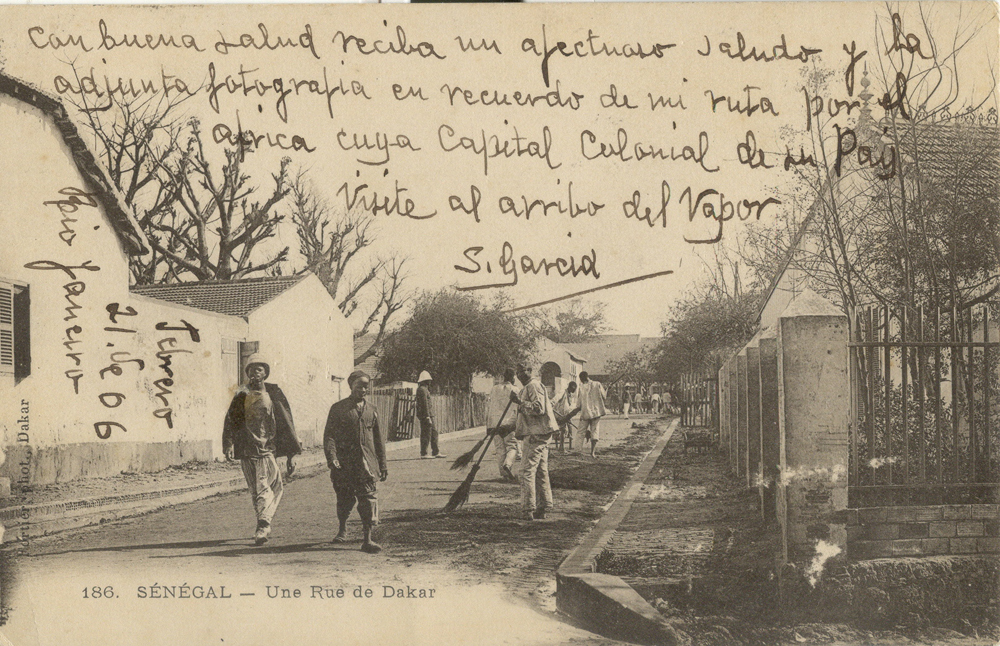 con buena salud reciba un afectuoso saludo y la
adjunta fotografia en recuerdo de mi ruta por el
africa cuya Capital Colonial de su Paÿ
Visite al arribo del Vapor
S. Garcia
Rio Janeiro
Febrero
21. de 06
Fortier, Phot., Dakar
186. SÉNÉGAL — Une Rue de Dakar